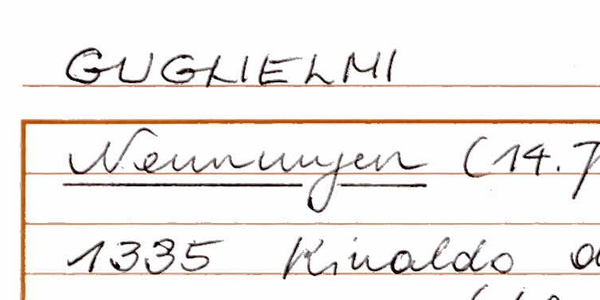 GUGLIELMI
Nennungen (14.7
1335 Rinaldo d